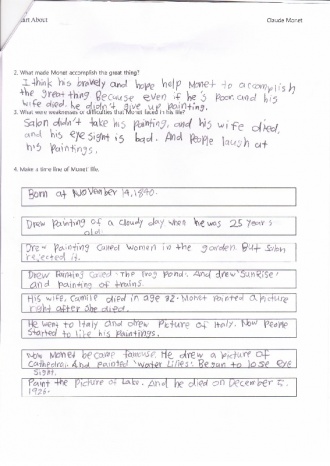 art About Claude Monet
2. What made Monet accomplish the great thing?
I think his bravely and hope help Monet to accomplish
the great thing Because even if he's Poor and his
wife died. he didn't give up painting.
3. What were weaknesses or difficulties that Monet faced in his life?
Salon didn't take his painting, and his wife died,
and his eye sight is bad. And People laugh at
his Paintings.
4. Make a time line of Monet' life.
Born at November 14, 1840.
Drew Painting of a Cloudy day when he was 25 years
old.
Drew Painting Called Women in the garden. But Salon
rejected it.
Drew Painting Called "The Frog Pond". And drew "Sunrise"
and Painting of trains.
His wife, Camile died in age 32. Monet Painted A Picture
right after She died.
He went to Italy and drew Picture of Italy. Now People
Started to like his Paintings.
Now Moned became famouse. He drew a picture of
Cathedral. And Painted "Water Lilies". Began to lose eye
Sight.
Paint the Picture of Lake. And he died on December 5,
1926.